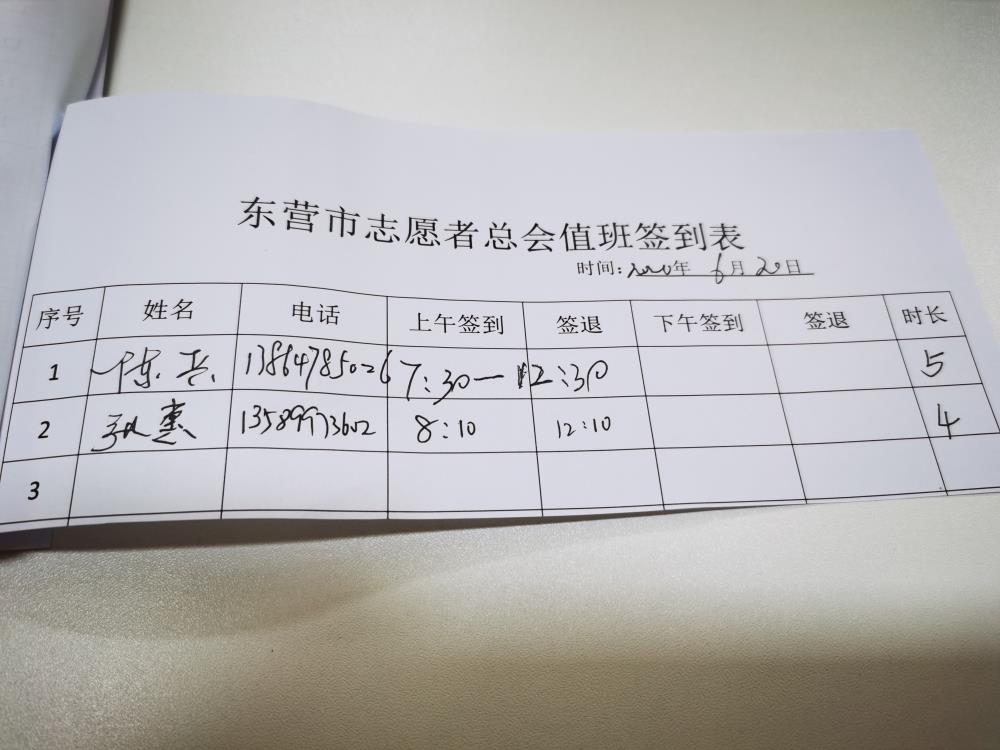 东营市志愿者总会值班签到表
时间:2020年 6月20日
序号 姓名 电话 上午签到 签退 下午签到 签退 时长
1 陈兵 13864785026 7:30— 12:30 5
2 惠 13589973602 8:10 12:10 4
3